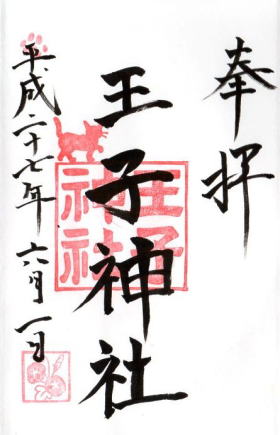 奉拝
王子神社
王子神社
平成二十七年六月一日